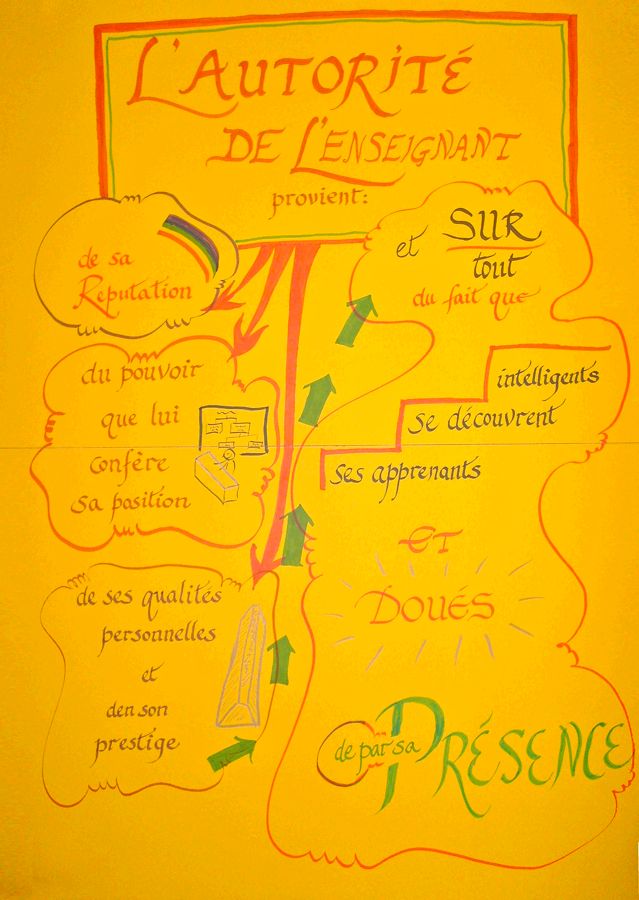 L'AUTORITÉ
DE L'ENSEIGNANT
provient:
de sa
Reputation
du pouvoir
que lui
confère
sa position
de ses qualités
personnelles
et
den son
prestige
et SUR
tout
du fait que
ses apprenants
se découvrent
intelligents
ET
DOUÉS
de par sa PRÉSENCE